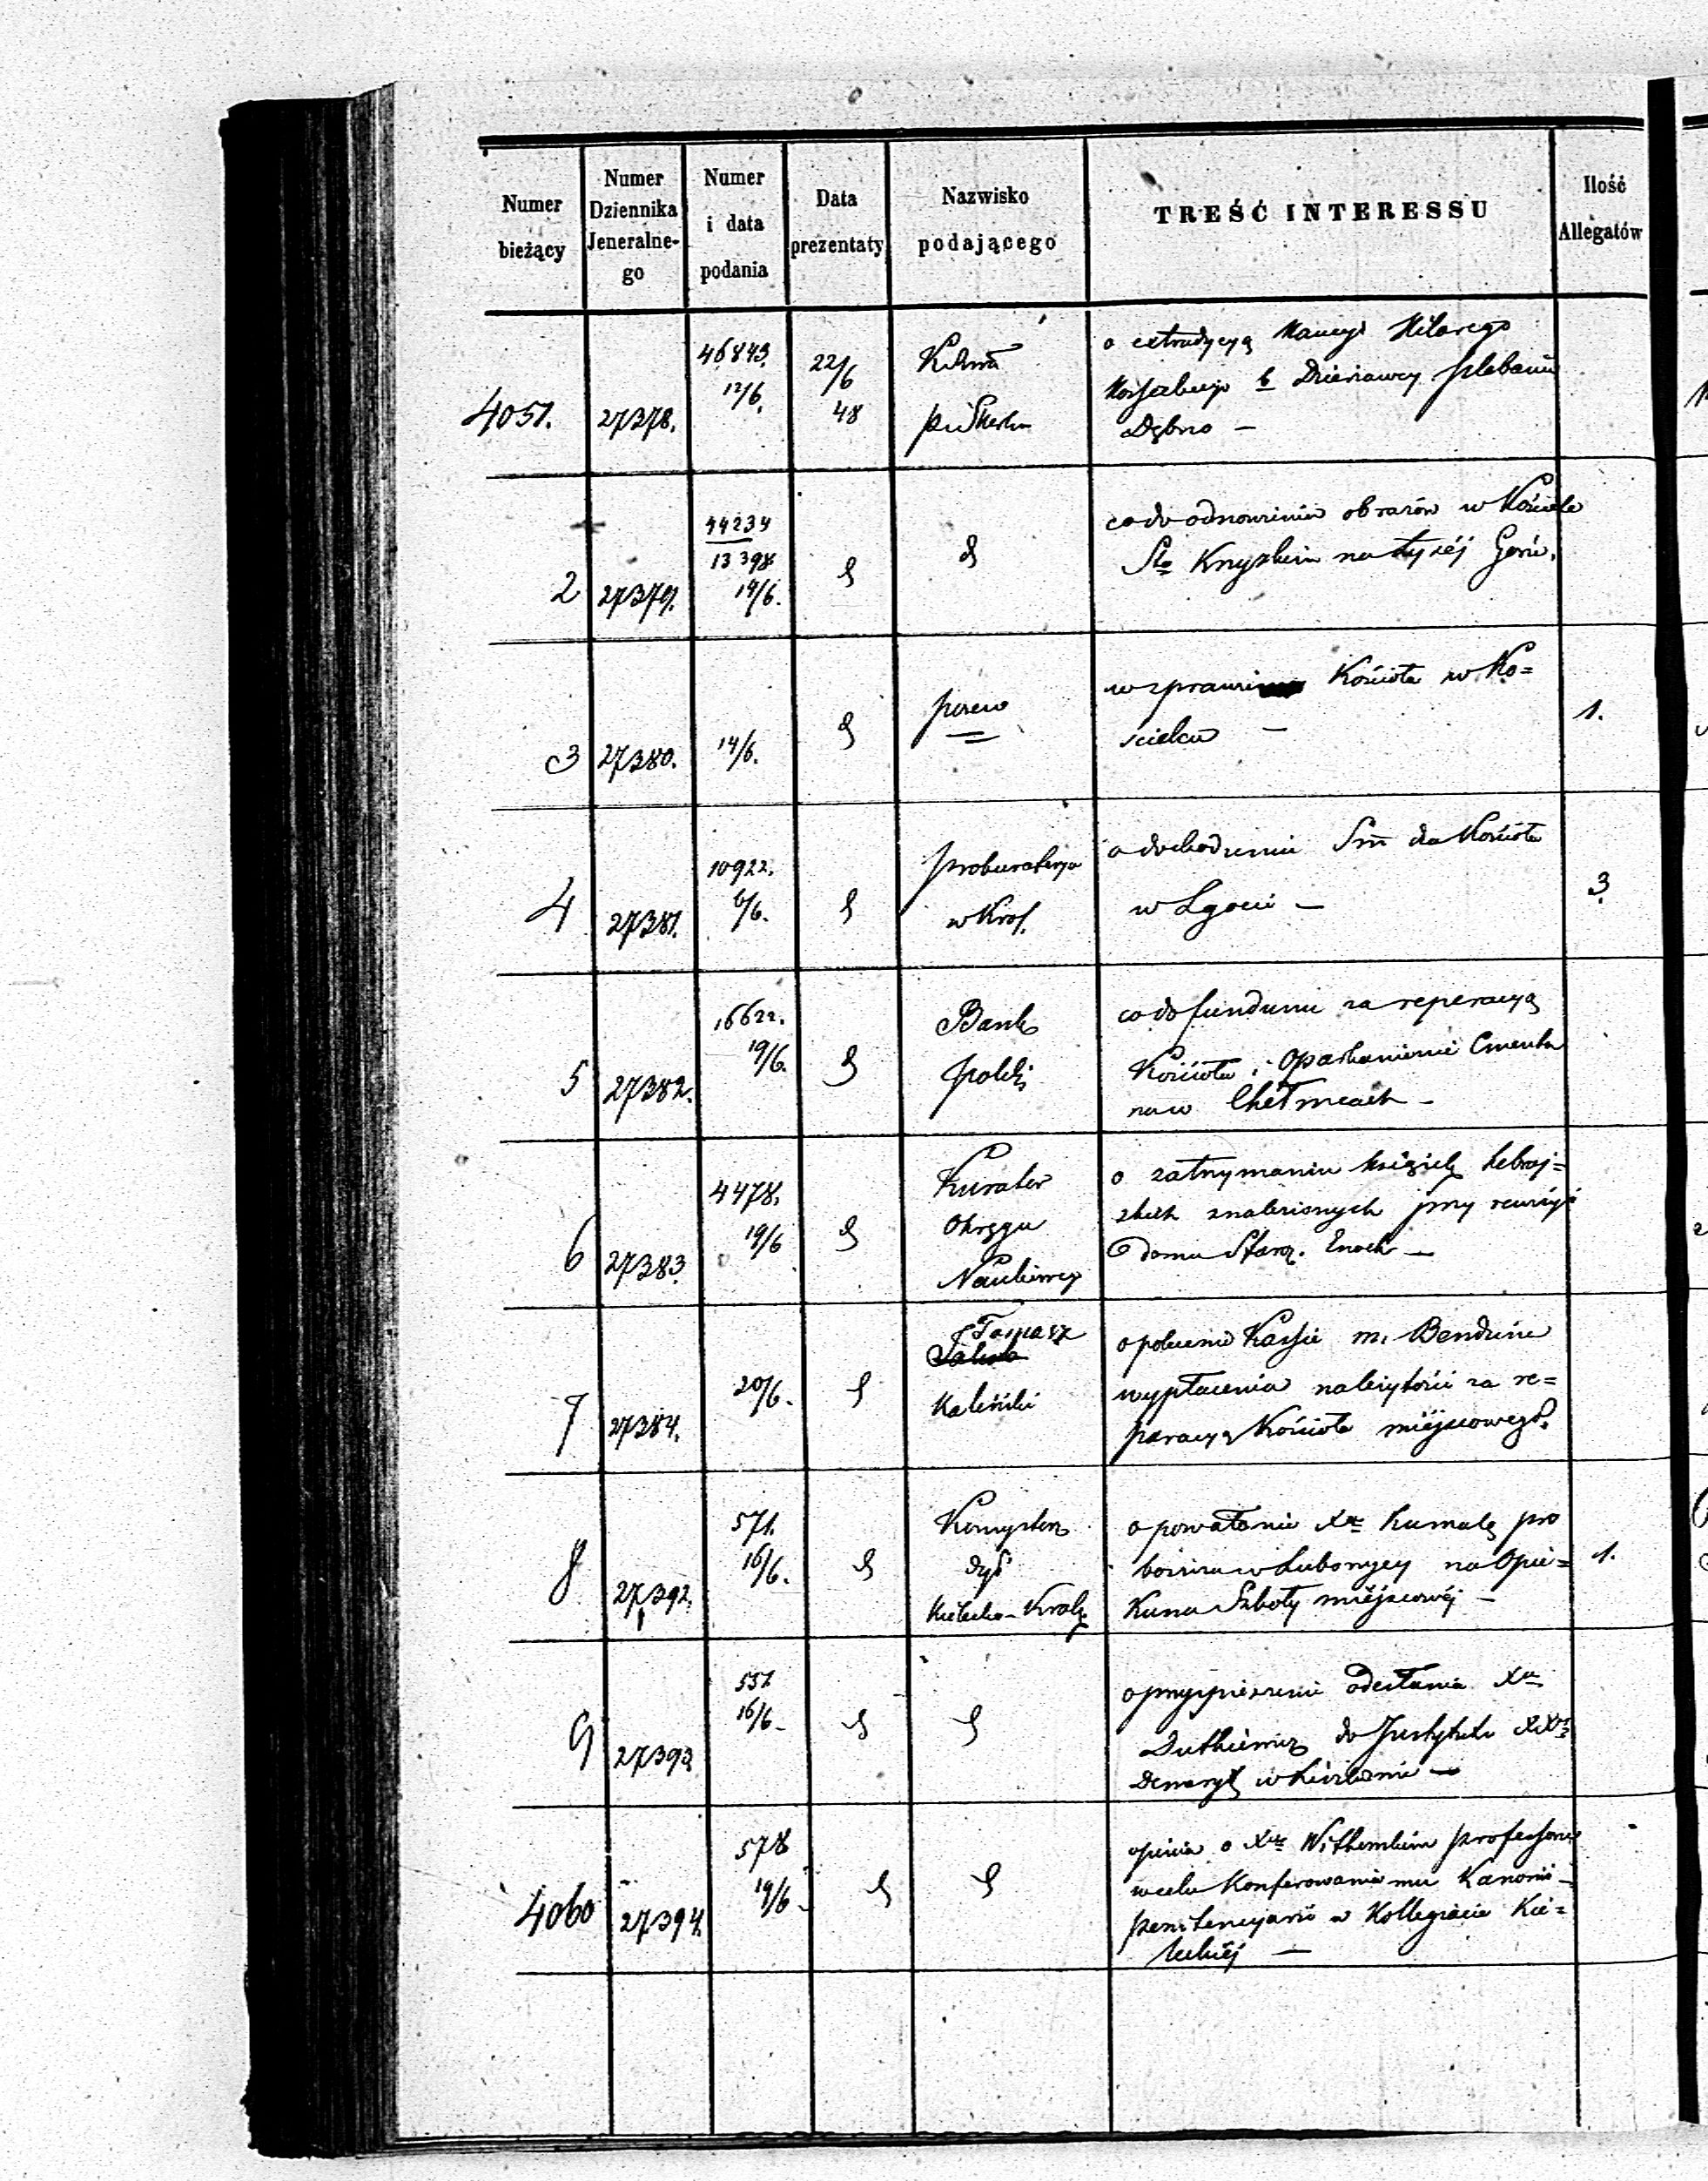 Numer bieżący
Numer Dziennika Jeneralne-go
Numer i data podania
Data prezentaty
Nazwisko podającego
TREŚĆ INTERESSU
Ilość Allegatów
4051.
27378.
46843.
12/6.
22/6
48
o extradycyą Kaucyi Hilarego
b Dzierżawcy plebanii
Dębno —
2
27379.
44234
13398
14/6.
co do odnowienia obrazów w Kościele
Sto Krzyzkim na Łyséj Górze.
3
27380.
14/6.
w sprawie Kościoła w Ko=
scielcu —
1.
4
27381.
10922.
6/6.
prokuratorya
w Król.
o dochodzeniu Sm dla Kościoła
w Lgocie —
3
5
27382.
16622.
19/6.
Bank
polski
co do funduszu za reperacyą
Kościoła i Oparkanienie Cmenta
na w Chełmcach —
6
27383.
4478.
19/6
Kurator
Okręgu
Naukowego
o zatrzymaniu książek hebraj=
skich znalezionych przy rewizyi
domu Staroz. Enoch —
7
27384.
20/6.
Tomasz
Kaliński
o polecenie Kassie m. Bendzina
wypłacenia należytości za re=
paracyą Kościoła miéjscowego.
8
27392.
571.
16/6.
Konsystorz
dyś
Kielecko-Krak.
o powołanie Xa Kumalę pro
boszcza w Luborzycy na Opie=
kuna Szkoły miéjscowéj —
1.
9
27393
557
16/6-
o przyspieszenie odesłania Xa
Dutkiewicz do Instytutu XXy
Demeryt. w Liszkowie —
4060
27394.
578
19/6-
opinia o Xdzu professorze
w celu Konferowania mu Kanonii
penitencyarii w Kollegiacie Kie=
leckiéj —